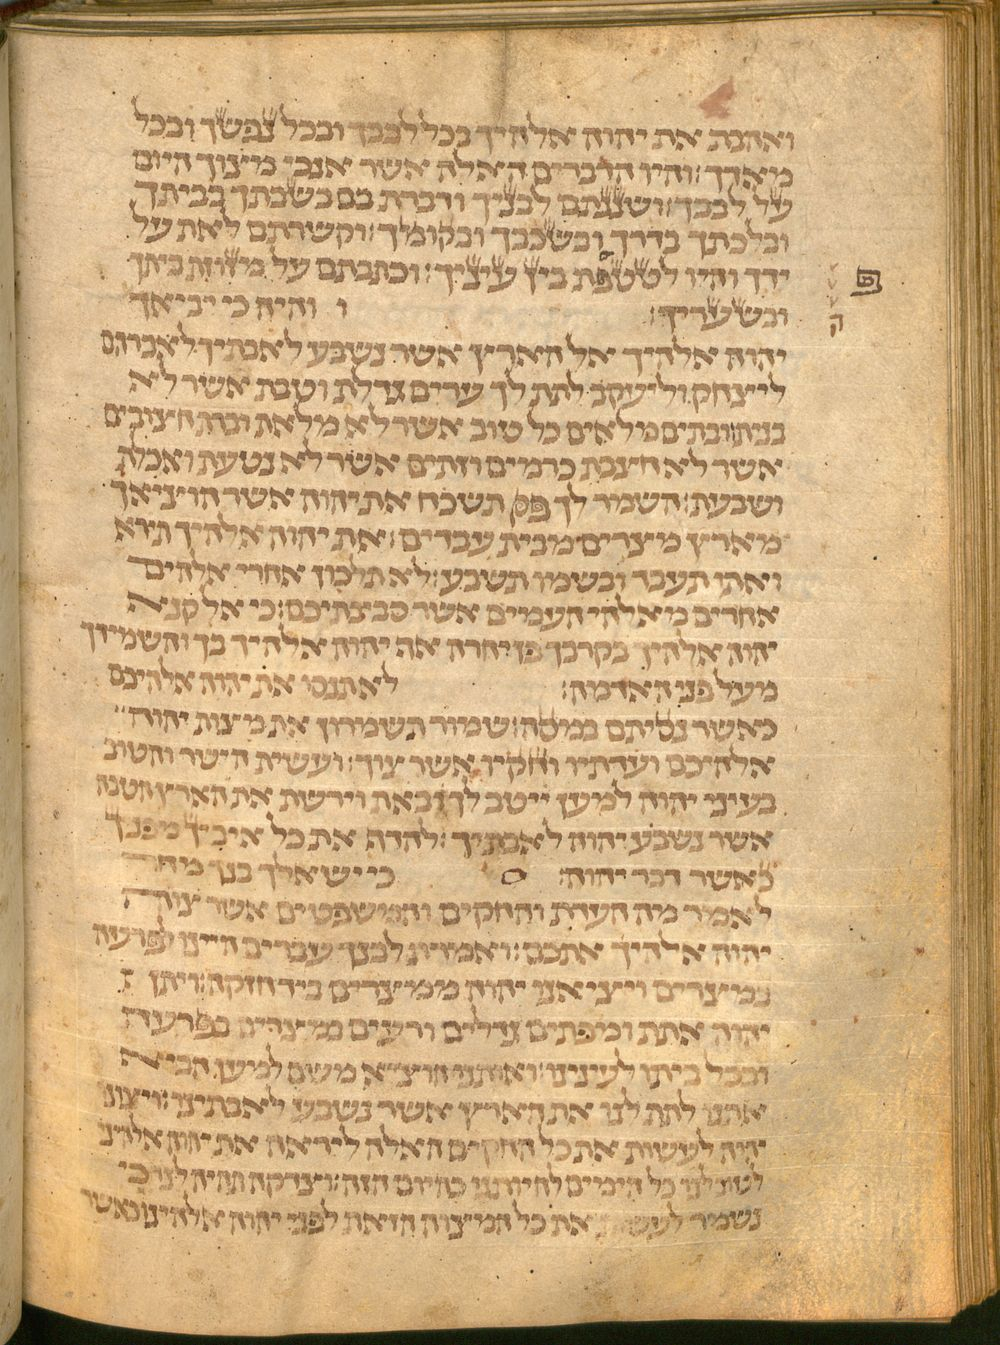 ואהבת את יהוה אלהיך בכל לבבך ובכל נפשך ובכל
מאדך׃ והיו הדברים האלה אשר אנכי מצוך היום
על לבבך׃ ושננתם לבניך ודברת בם בשבתך בביתך
ובלכתך בדרך ובשכבך ובקומך׃ וקשרתם לאת על
ידך והיו לטטפת בין עיניך׃ וכתבתם על מזוזת ביתך
ובשעריך׃ ו והיה כי יביאך
יהוה אלהיך אל הארץ אשר נשבע לאבתיך לאברהם
ליצחק וליעקב לתת לך ערים גדלת וטבת אשר לא
בנית׃ ובתים מלאים כל טוב אשר לא מלאת וברת חצובים
אשר לא חצבת כרמים וזתים אשר לא נטעת ואכלת
ושבעת׃ השמר לך פן תשכח את יהוה אשר הוציאך
מארץ מצרים מבית עבדים׃ את יהוה אלהיך תירא
ואתו תעבד ובשמו תשבע׃ לא תלכון אחרי אלהים
אחרים מאלהי העמים אשר סביבתיכם׃ כי אל קנא
יהוה אלהיך בקרבך פן יחרה אף יהוה אלהיך בך והשמידך
מעל פני האדמה׃ לא תנסו את יהוה אלהיכם
כאשר נסיתם במסה׃ שמור תשמרון את מצות יהוה
אלהיכם ועדתיו וחקיו אשר צוך׃ ועשית הישר והטוב
בעיני יהוה למען ייטב לך ובאת וירשת את הארץ הטבה
אשר נשבע יהוה לאבתיך׃ להדף את כל איביך מפניך
כאשר דבר יהוה׃ ס כי ישאלך בנך מחר
לאמר מה העדת והחקים והמשפטים אשר צוה
יהוה אלהינו אתכם׃ ואמרת לבנך עבדים היינו לפרעה
במצרים ויציאנו יהוה ממצרים ביד חזקה׃ ויתן
יהוה אתת ומפתים גדלים ורעים במצרים בפרעה
ובכל ביתו לעינינו׃ ואותנו הוציא משם למען הביא
אתנו לתת לנו את הארץ אשר נשבע לאבתינו׃ ויצונו
יהוה לעשות את כל החקים האלה ליראה את יהוה אלהינו
לטוב לנו כל הימים לחיותנו כהיום הזה׃ וצדקה תהיה לנו כי
נשמר לעשות את כל המצוה הזאת לפני יהוה אלהינו כאשר